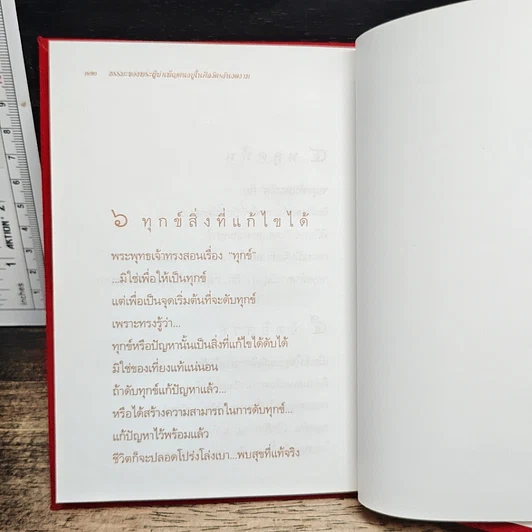 ๖ ทุกข์สิ่งที่แก้ไขได้
พระพุทธเจ้าทรงสอนเรื่อง "ทุกข์"
...มิใช่เพื่อให้เป็นทุกข์
แต่เพื่อเป็นจุดเริ่มต้นที่จะดับทุกข์
เพราะทรงรู้ว่า...
ทุกข์หรือปัญหานั้นเป็นสิ่งที่แก้ไขได้ดับได้
มิใช่ของเที่ยงแท้แน่นอน
ถ้าดับทุกข์แก้ปัญหาแล้ว...
หรือได้สร้างความสามารถในการดับทุกข์...
แก้ปัญหาไว้พร้อมแล้ว
ชีวิตก็จะปลอดโปร่งโล่งเบา...พบสุขที่แท้จริง
inches
1
2
ACTION